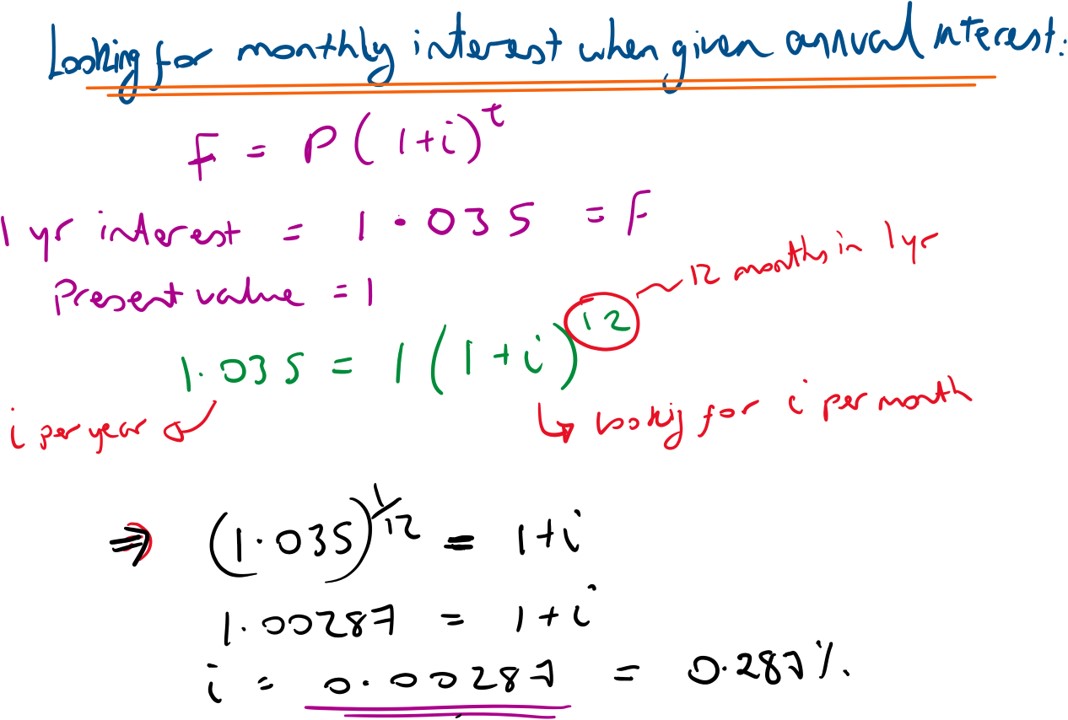 Looking for monthly interest when given annual interest:
F = P(1+i)^t
1 yr interest = 1.035 = F
Present value = 1
12 months in 1 yr
1.035 = 1(1+i)^12
i per year
looking for i per month
⇒ (1.035)^1/12 = 1+i
1.00287 = 1+i
i = 0.00287 = 0.287%.